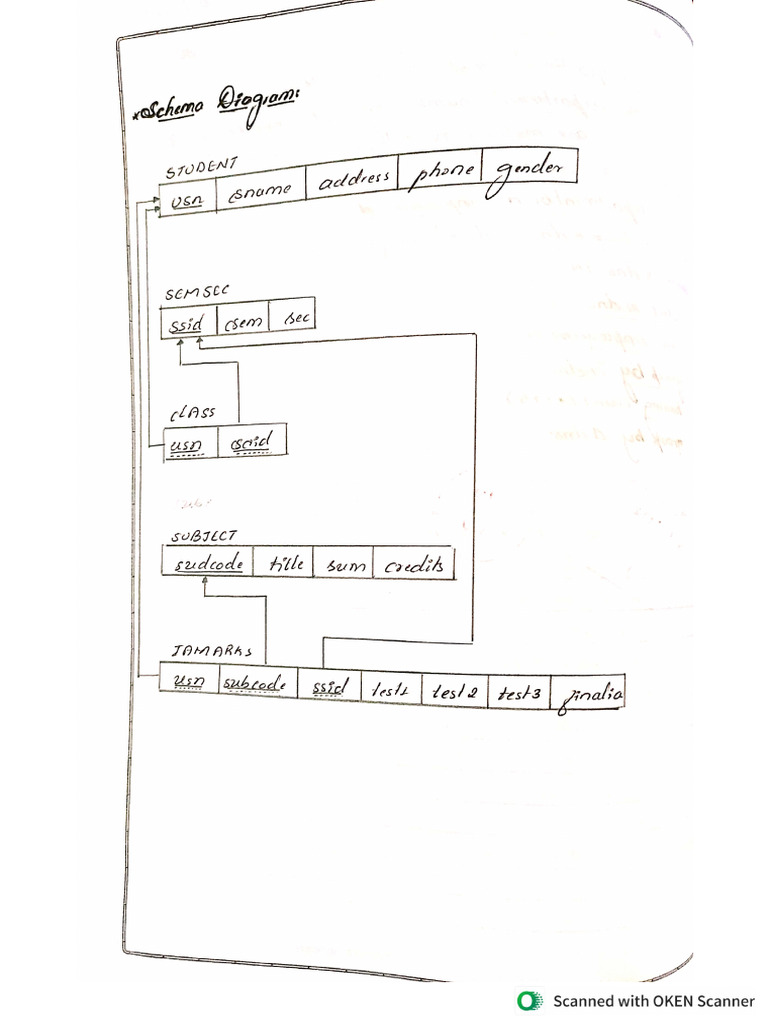 *Schema Diagram:
STUDENT
usn sname address phone gender
SEMSEC
ssid sem sec
CLASS
usn ssid
SUBJECT
sudcode title sum credits
IAMARKS
usn subcode ssid test1 test2 test3 finalia
Scanned with OKEN Scanner